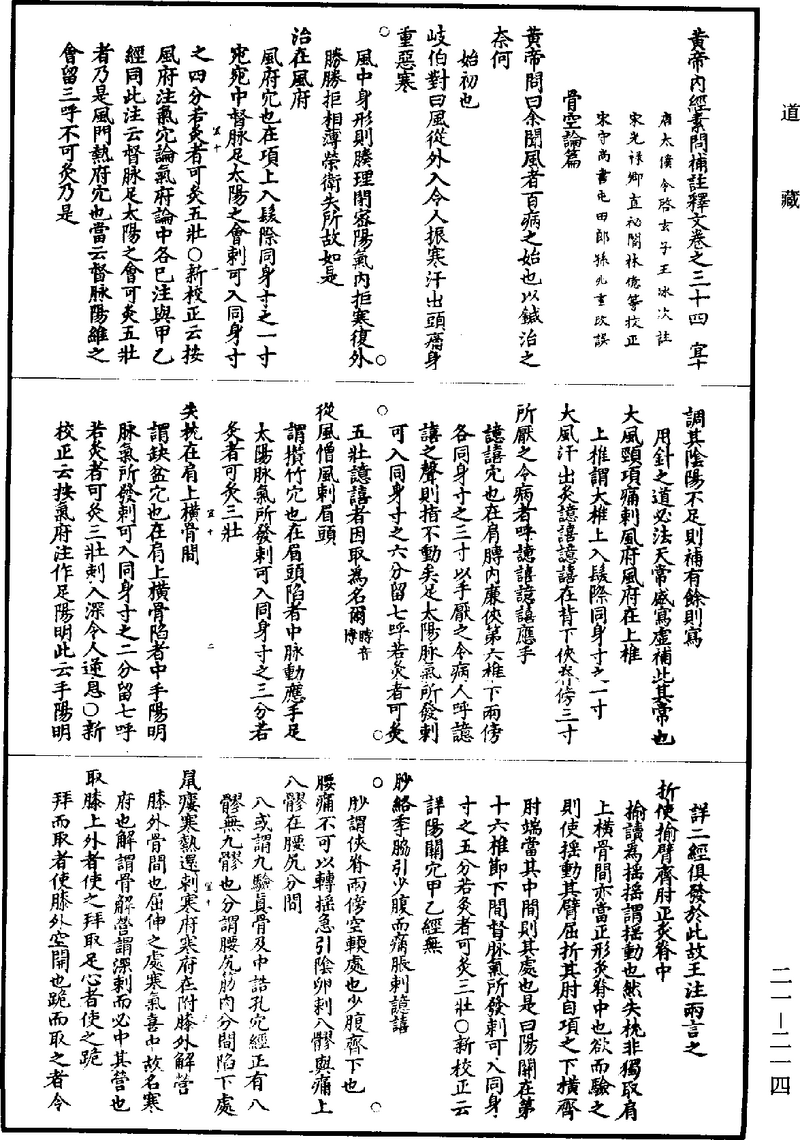 道藏
黃帝內經素問補註釋文卷之三十四 宜十
唐太僕令啓玄子王冰次註
宋光祿卿直祕閣林億等校正
宋守尚書屯田郎孫兆重改誤
骨空論篇
黃帝問曰余聞風者百病之始也以鍼治之
奈何
始初也
岐伯對曰風從外入令人振寒汗出頭痛身
重惡寒
風中身形則腠理閉密陽氣內拒寒復外
勝勝拒相薄榮衛失所故如是
治在風府
風府穴也在項上入髮際同身寸之一寸
宛宛中督脉足太陽之會刺可入同身寸
之四分若灸者可灸五壯○新校正云按
風府注氣穴論氣府論中各已注與甲乙
經同此注云督脉足太陽之會可灸五壯
者乃是風門熱府穴也當云督脉陽維之
會留三呼不可灸乃是
調其陰陽不足則補有餘則寫
用針之道必法天常盛寫虛補此其常也
大風頸項痛刺風府風府在上椎
上椎謂大椎上入髮際同身寸之一寸
大風汗出灸譩譆譩譆在背下俠脊傍三寸
所厭之令病者呼譩譆譩譆應手
譩譆穴也在肩膊內廉俠第六椎下兩傍
各同身寸之三寸以手厭之令病人呼譩
譆之聲則指不動矣足太陽脉氣所發刺
可入同身寸之六分留七呼若灸者可灸
五壯譩譆者因取爲名爾膊音博
從風憎風刺眉頭
謂攢竹穴也在眉頭陷者中脉動應手足
太陽脉氣所發刺可入同身寸之三分若
灸者可灸三壯
失枕在肩上橫骨間
謂缺盆穴也在肩上橫骨陷者中手陽明
脉氣所發刺可入同身寸之二分留七呼
若灸者可灸三壯刺入深令人逆息○新
校正云按氣府注作足陽明此云手陽明
詳二經俱發於此故王注兩言之
折使揄臂齊肘正灸脊中
揄讀爲搖搖謂搖動也然失枕非獨取肩
上橫骨間亦當正形灸脊中也欲而驗之
則使搖動其臂屈折其肘自項之下橫齊
肘端當其中間則其處也是曰陽關在第
十六椎節下間督脉氣所發刺可入同身
寸之五分若灸者可灸三壯○新校正云
詳陽關穴甲乙經無
䏚絡季脇引少腹而痛脹刺譩譆
䏚謂俠脊兩傍空軟處也少腹齊下也
腰痛不可以轉搖急引陰卵刺八髎與痛上
八髎在腰尻分間
八或謂九驗真骨及中誥孔穴經正有八
髎無九髎也分謂腰尻筋肉分間陷下處
鼠瘻寒熱還刺寒府寒府在附膝外解營
膝外骨間也屈伸之處寒氣喜中故名寒
府也解謂骨解營謂深刺而必中其營也
取膝上外者使之拜取足心者使之跪
拜而取者使膝外空開也跪而取之者令
二一—二一四